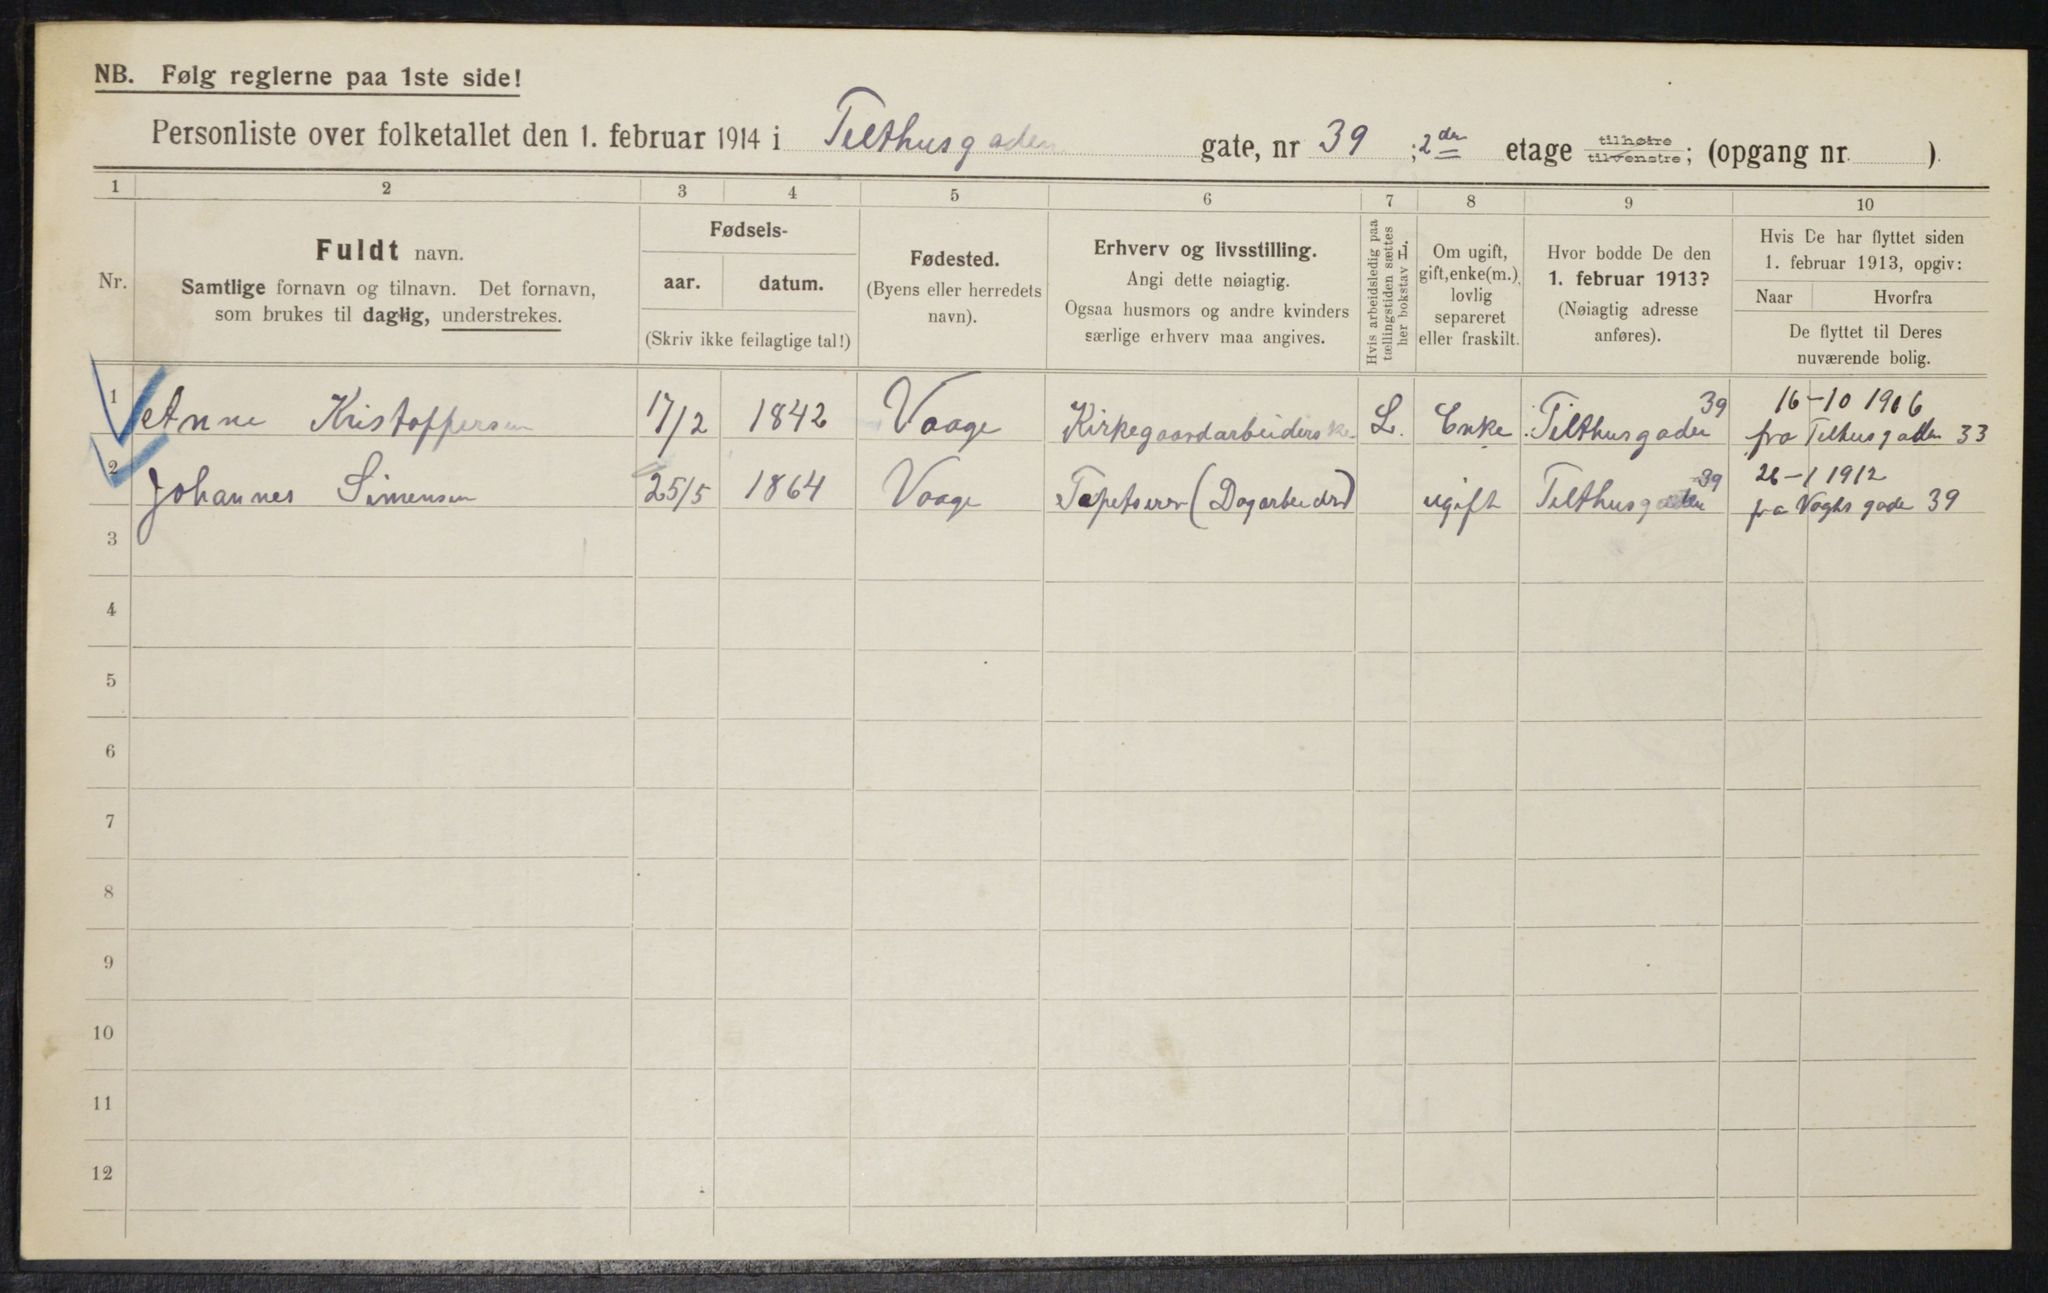 NB. Følg reglerne paa 1ste side!
Personliste over folketallet den 1. februar 1914 i Telthusgaden gate, nr 39 ; 2den etage tilhøire tilvenstre; (opgang nr. ).
1 2 3 4 5 6 7 8 9 10
Nr.
Fuldt navn.
Samtlige fornavn og tilnavn. Det fornavn,
som brukes til daglig, understrekes.
Fødsels-
aar. datum.
(Skriv ikke feilagtige tal!)
Fødested.
(Byens eller herredets
navn).
Erhverv og livsstilling.
Angi dette nøiagtig.
Ogsaa husmors og andre kvinders
særlige erhverv maa angives.
Hvis arbeidsledig paa
tællingstiden sættes
her bokstav L.
Om ugift,
gift, enke(m.),
lovlig
separeret
eller fraskilt.
Hvor bodde De den
1. februar 1913?
(Nøiagtig adresse
anføres).
Hvis De har flyttet siden
1. februar 1913, opgiv:
Naar Hvorfra
De flyttet til Deres
nuværende bolig.
1 Anne Kristoffersen 17/2 1842 Vaage Kirkegaardarbeiderske L. Enke Telthusgaden 39 16-10 1906
fra Telhusgaden 33
2 Johannes Simensen 25/5 1864 Vaage Tapetserer (Dagarbeider) ugift Telthusgaden 39 26-1 1912
fra Vogts gade 39
3
4
5
6
7
8
9
10
11
12